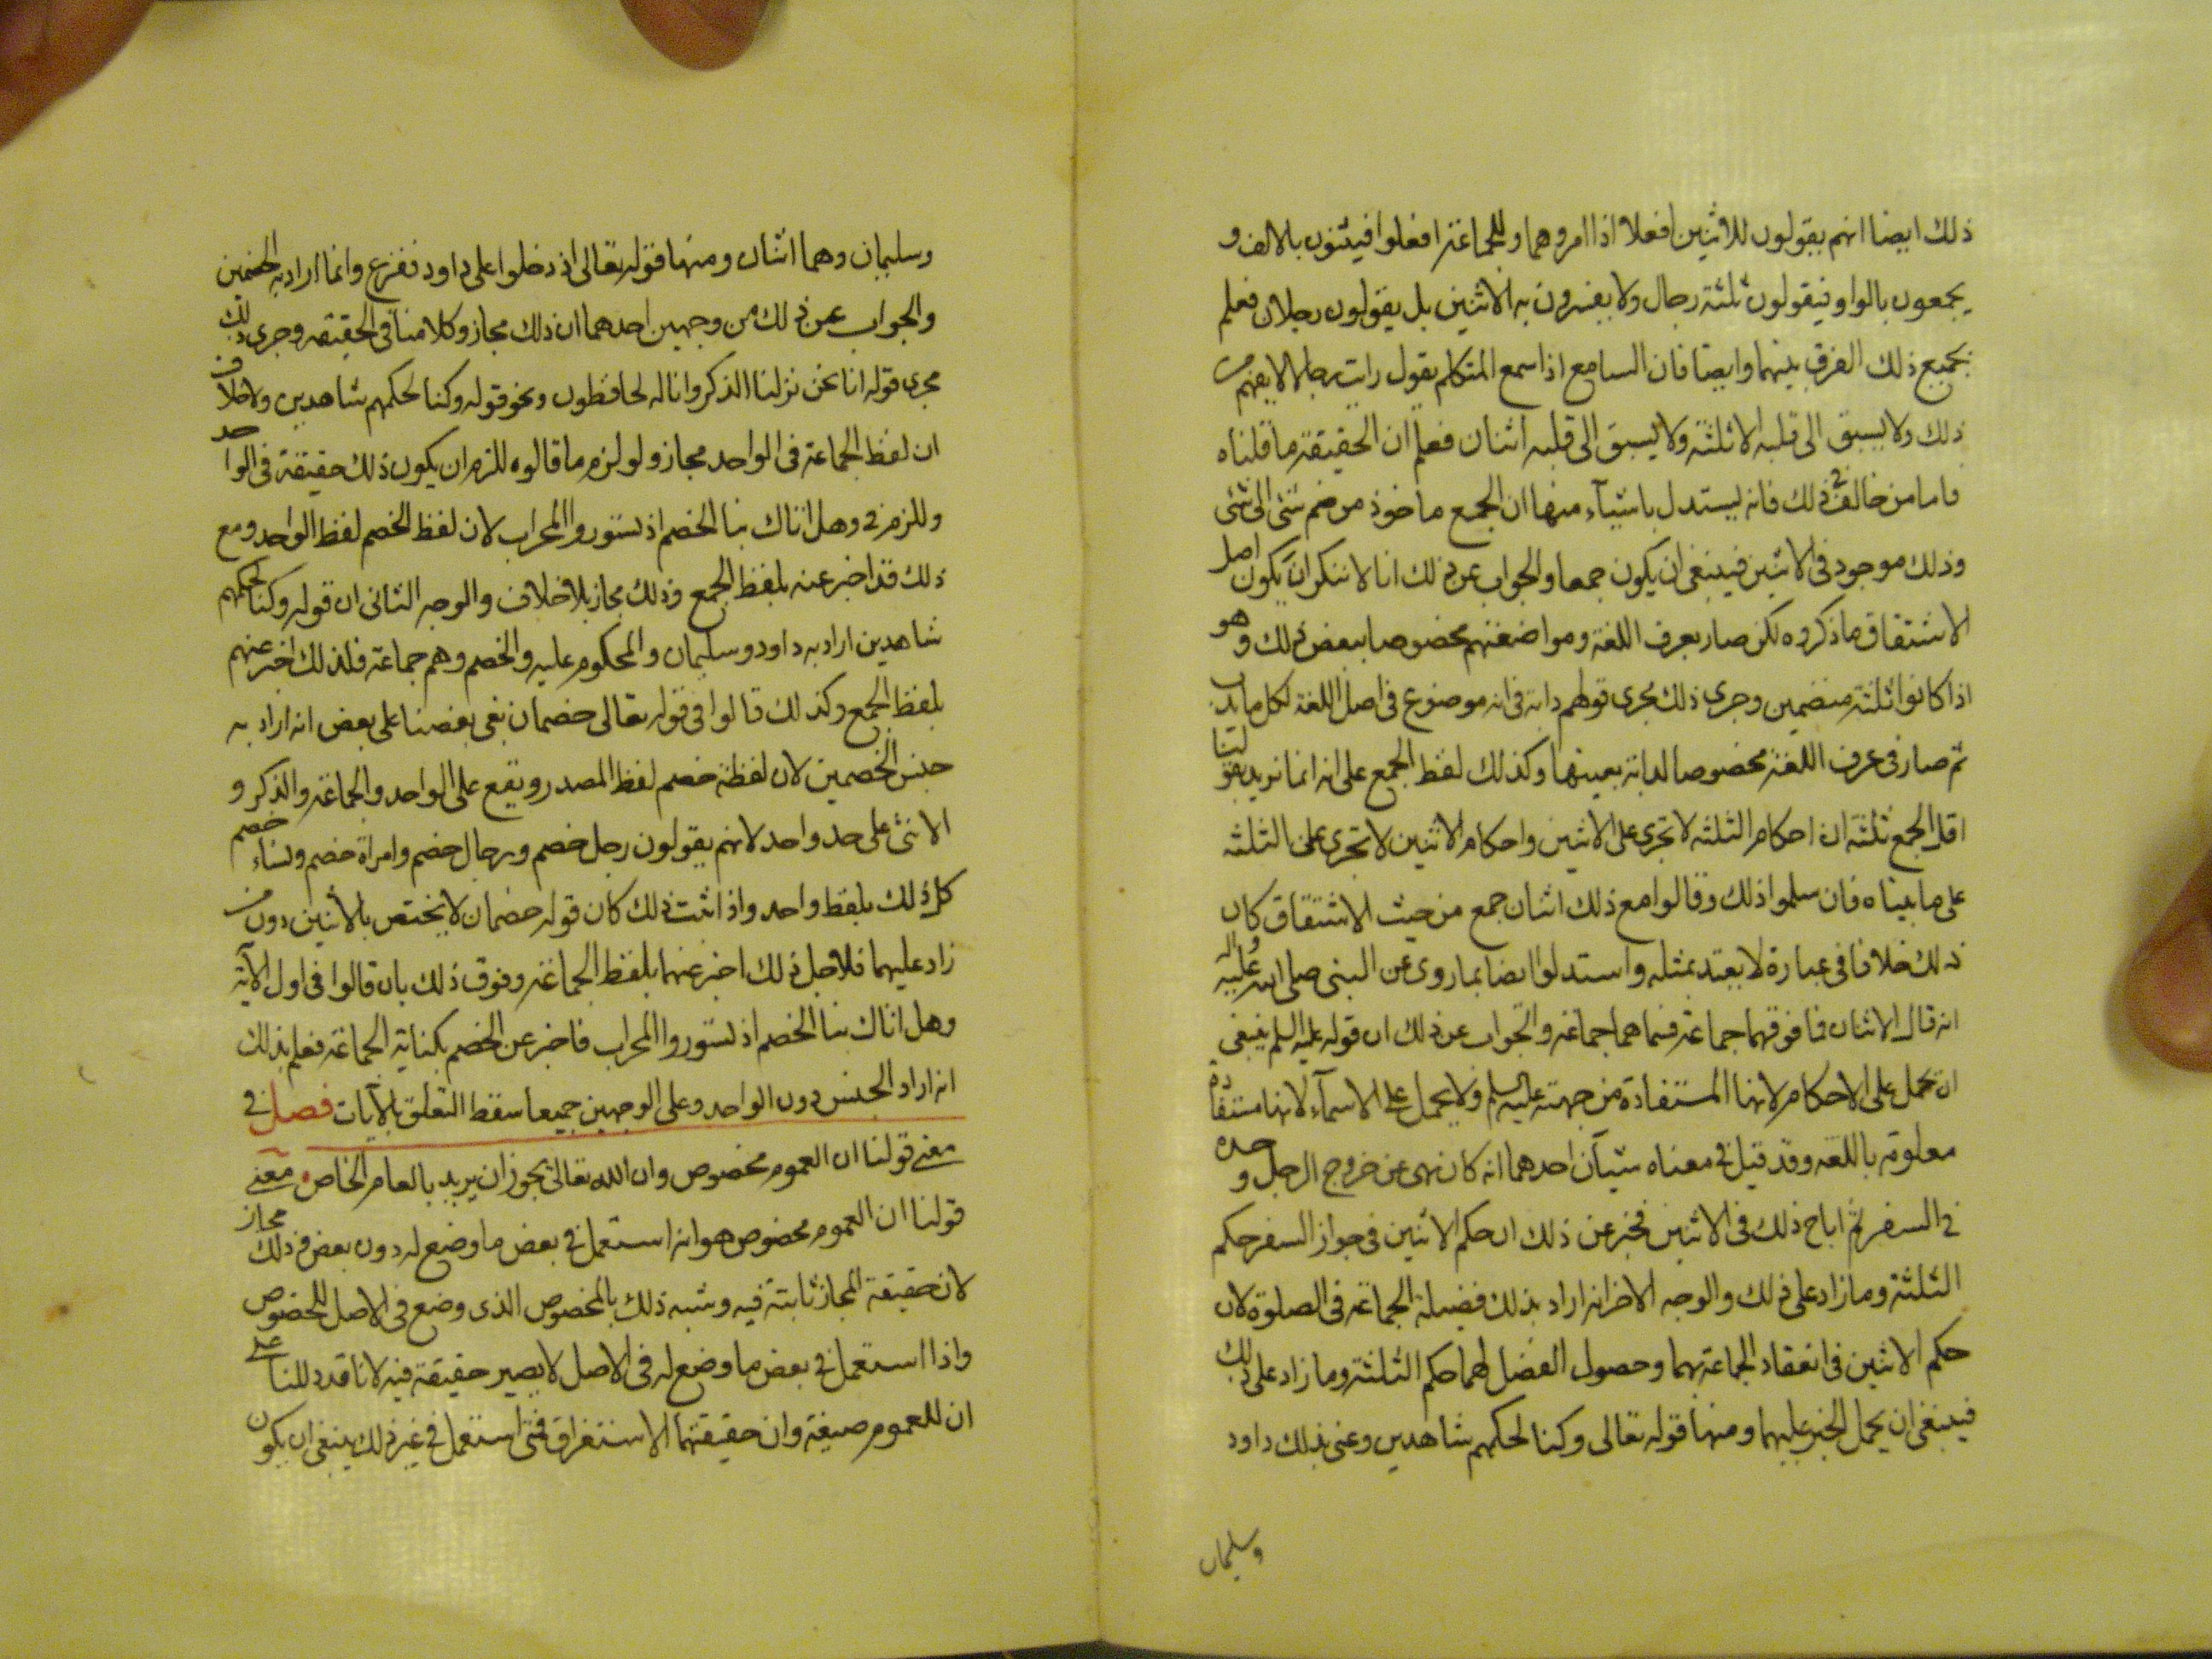 ذلك ايضا انهم يقولون للاثنين افعلا اذا امروهما وللجماعة افعلوا فيثنون بالالف و
يجمعون بالواو فيقولون ثلثة رجال ولا يفسرون به الاثنين بل يقولون رجلان فعلم
بجميع ذلك الفرق بينهما وايضا فان السامع اذا سمع المتكلم يقول رايت رجالا لا يفهم من
ذلك ولا يسبق الى قلبه الا ثلثة ولا يسبق الى قلبه اثنان فعلم ان الحقيقة ما قلناه
فاما من خالف في ذلك فانه يستدل باشيآء منها ان الجمع ماخوذ من ضم شئ الى شئ
وذلك موجود في الاثنين فينبغي ان يكون جمعا والجواب عن ذلك انا لا ننكر ان يكون اصل
الاشتقاق ما ذكروه لكن صار بعرف اللغة ومواضعتهم مخصوصا ببعض ذلك وهو
اذا كانوا ثلثة منضمين وجرى ذلك مجرى قولهم دابة في انه موضوع في اصل اللغة لكل ما يدب
ثم صار في عرف اللغة مخصوصا لدابة بعينها وكذلك لفظ الجمع على انه انما نريد بقولنا
اقل الجمع ثلثة ان احكام الثلثة لا تجرى على الاثنين واحكام الاثنين لا تجرى على الثلثة
على ما بيناه فان سلموا ذلك وقالوا مع ذلك اثنان جمع من حيث الاشتقاق كان
ذلك خلافا في عبارة لا يعتد بمثله واستدلوا ايضا بما روى عن النبي صلى الله عليه واله
انه قال الاثنان فما فوقهما جماعة فسماهما جماعة والجواب عن ذلك ان قوله عليه السلم ينبغي
ان يحمل على الاحكام لانها المستفادة من جهته عليه السلم ولا يحمل على الاسمآء لانها مستفادة
معلومة باللغة وقد قيل في معناه شيآن احدهما انه كان نهى عن خروج الرجل وحده
في السفر ثم اباح ذلك في الاثنين فخبر عن ذلك ان حكم الاثنين في جواز السفر حكم
الثلثة وما زاد على ذلك والوجه الاخر انه اراد بذلك فضيلة الجماعة في الصلوة لان
حكم الاثنين في انعقاد الجماعة بهما وحصول الفضل لهما حكم الثلثة وما زاد على ذلك
فينبغي ان يحمل الخبر عليهما ومنها قوله تعالى وكنا لحكمهم شاهدين وعنى بذلك داود
وسليمان
وسليمان وهما اثنان ومنها قوله تعالى اذ دخلوا على داود ففزع وانما اراد به الخصمين
والجواب عن ذلك من وجهين احدهما ان ذلك مجاز وكلامنا في الحقيقة وجرى ذلك
مجرى قوله انا نحن نزلنا الذكر وانا له لحافظون ونحو قوله وكنا لحكمهم شاهدين ولا خلاف
ان لفظ الجماعة في الواحد مجاز ولو لزم ما قالوه للزم ان يكون ذلك حقيقة في الواحد
وللزم في وهل اتاك نبا الخصم اذ تسوروا المحراب لان لفظ الخصم لفظ الواحد ومع
ذلك فقد اخبر عنه بلفظ الجمع وذلك مجاز بلا خلاف والوجه الثاني ان قوله وكنا لحكمهم
شاهدين اراد به داود وسليمان والمحكوم عليه والخصم وهم جماعة فلذلك اخبر عنهم
بلفظ الجمع وكذلك قالوا في قوله تعالى خصمان بغى بعضنا على بعض انه اراد به
جنس الخصمين لان لفظة خصم لفظ المصدر ويقع على الواحد والجماعة والذكر و
الانثى على حد واحد لانهم يقولون رجل خصم ورجال خصم وامراة خصم ونساء خصم
كل ذلك بلفظ واحد واذا ثبت ذلك كان قوله خصمان لا يختص بالاثنين دون من
زاد عليهما فلاجل ذلك اخبر عنهما بلفظ الجماعة وفوق ذلك بان قالوا في اول الآية
وهل اتاك نبا الخصم اذ تسوروا المحراب فاخبر عن الخصم بكناية الجماعة فعلم بذلك
انه اراد الجنس دون الواحد وعلى الوجهين جميعا سقط التعلق بالآيات فصل في
معنى قولنا ان العموم مخصوص وان الله تعالى يجوز ان يريد بالعام الخاص معنى
قولنا ان العموم مخصوص هو انه استعمل في بعض ما وضع له دون بعض وذلك مجاز
لان حقيقة المجاز ثابتة فيه وشبه ذلك بالمخصوص الذى وضع في الاصل للخصوص
واذا استعمل في بعض ما وضع له في الاصل لا يصير حقيقة فيه لانا قد دللنا على
ان للعموم صيغة وان حقيقتها الاستغراق فمتى استعمل في غير ذلك ينبغي ان يكون